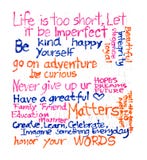 Life is too short, Let
it be Imperfect
Be kind happy
Yourself
Beautiful
integrity
go on adventure
be curious
Never give up
HOPES
DREAMS
Future
Have a greatful
Family Friend
Education
Matters
Create, Learn, Celebrate,
Imagine Something Everyday
honor your WORDS